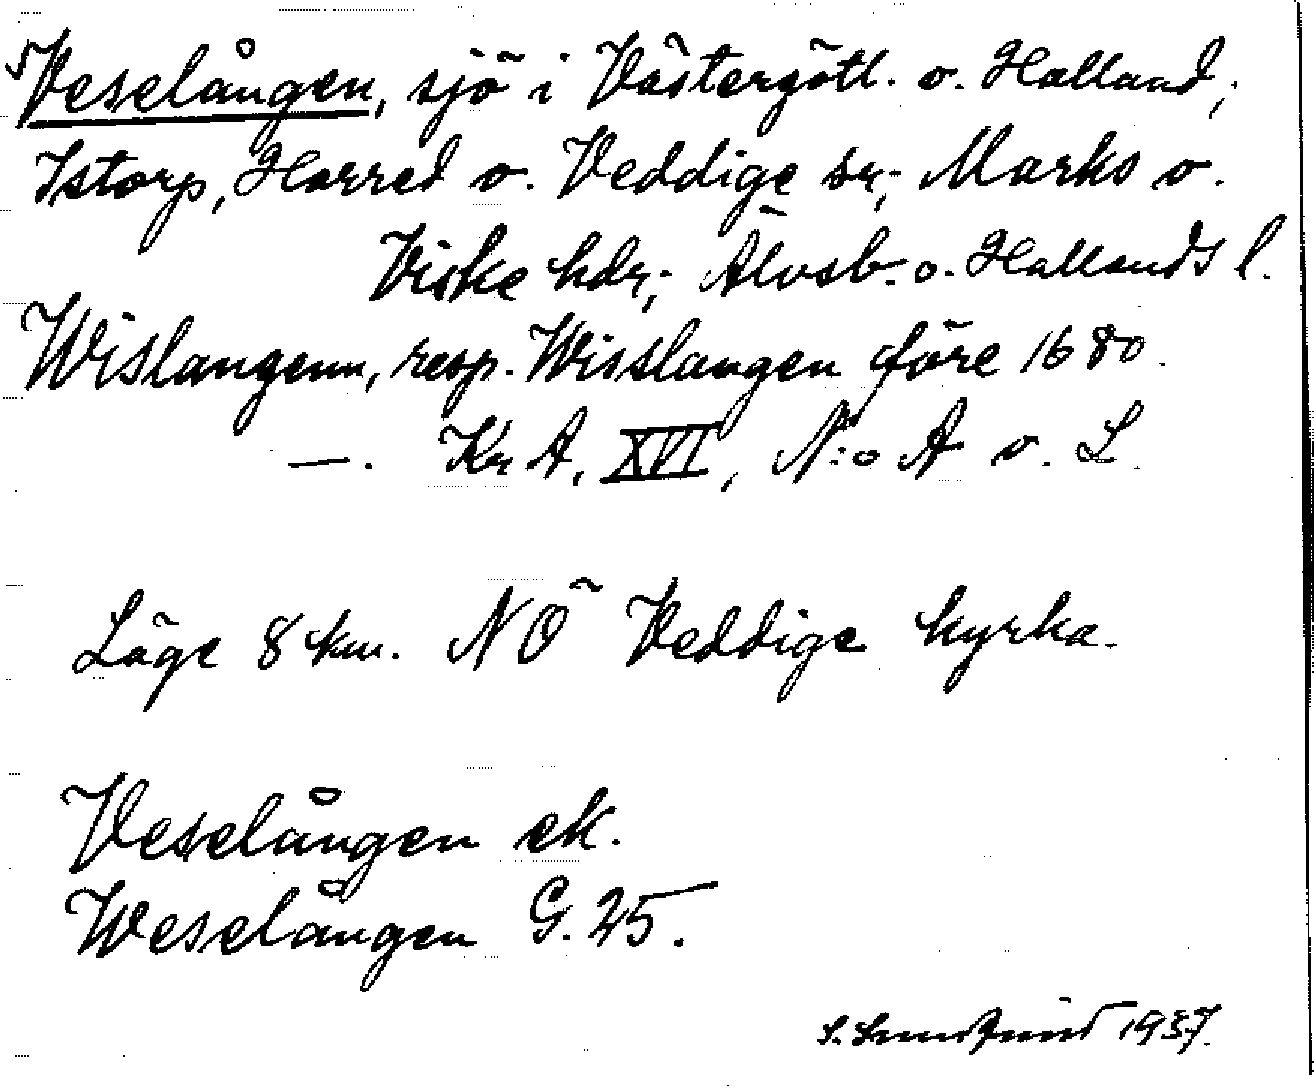 Veselången, sjö i Västergötl. o. Halland;
Istorp, Horred o. Veddige sr; Marks o.
Viske hdr; Älvsb. o. Hallands l.
Wislangenn, resp. Wisslangen före 1680.
—. Kr A, XVI, N:o A o. L
Läge 8 km. NÖ Veddige kyrka.
Veselången ek.
Weselången G. 25.
1937.